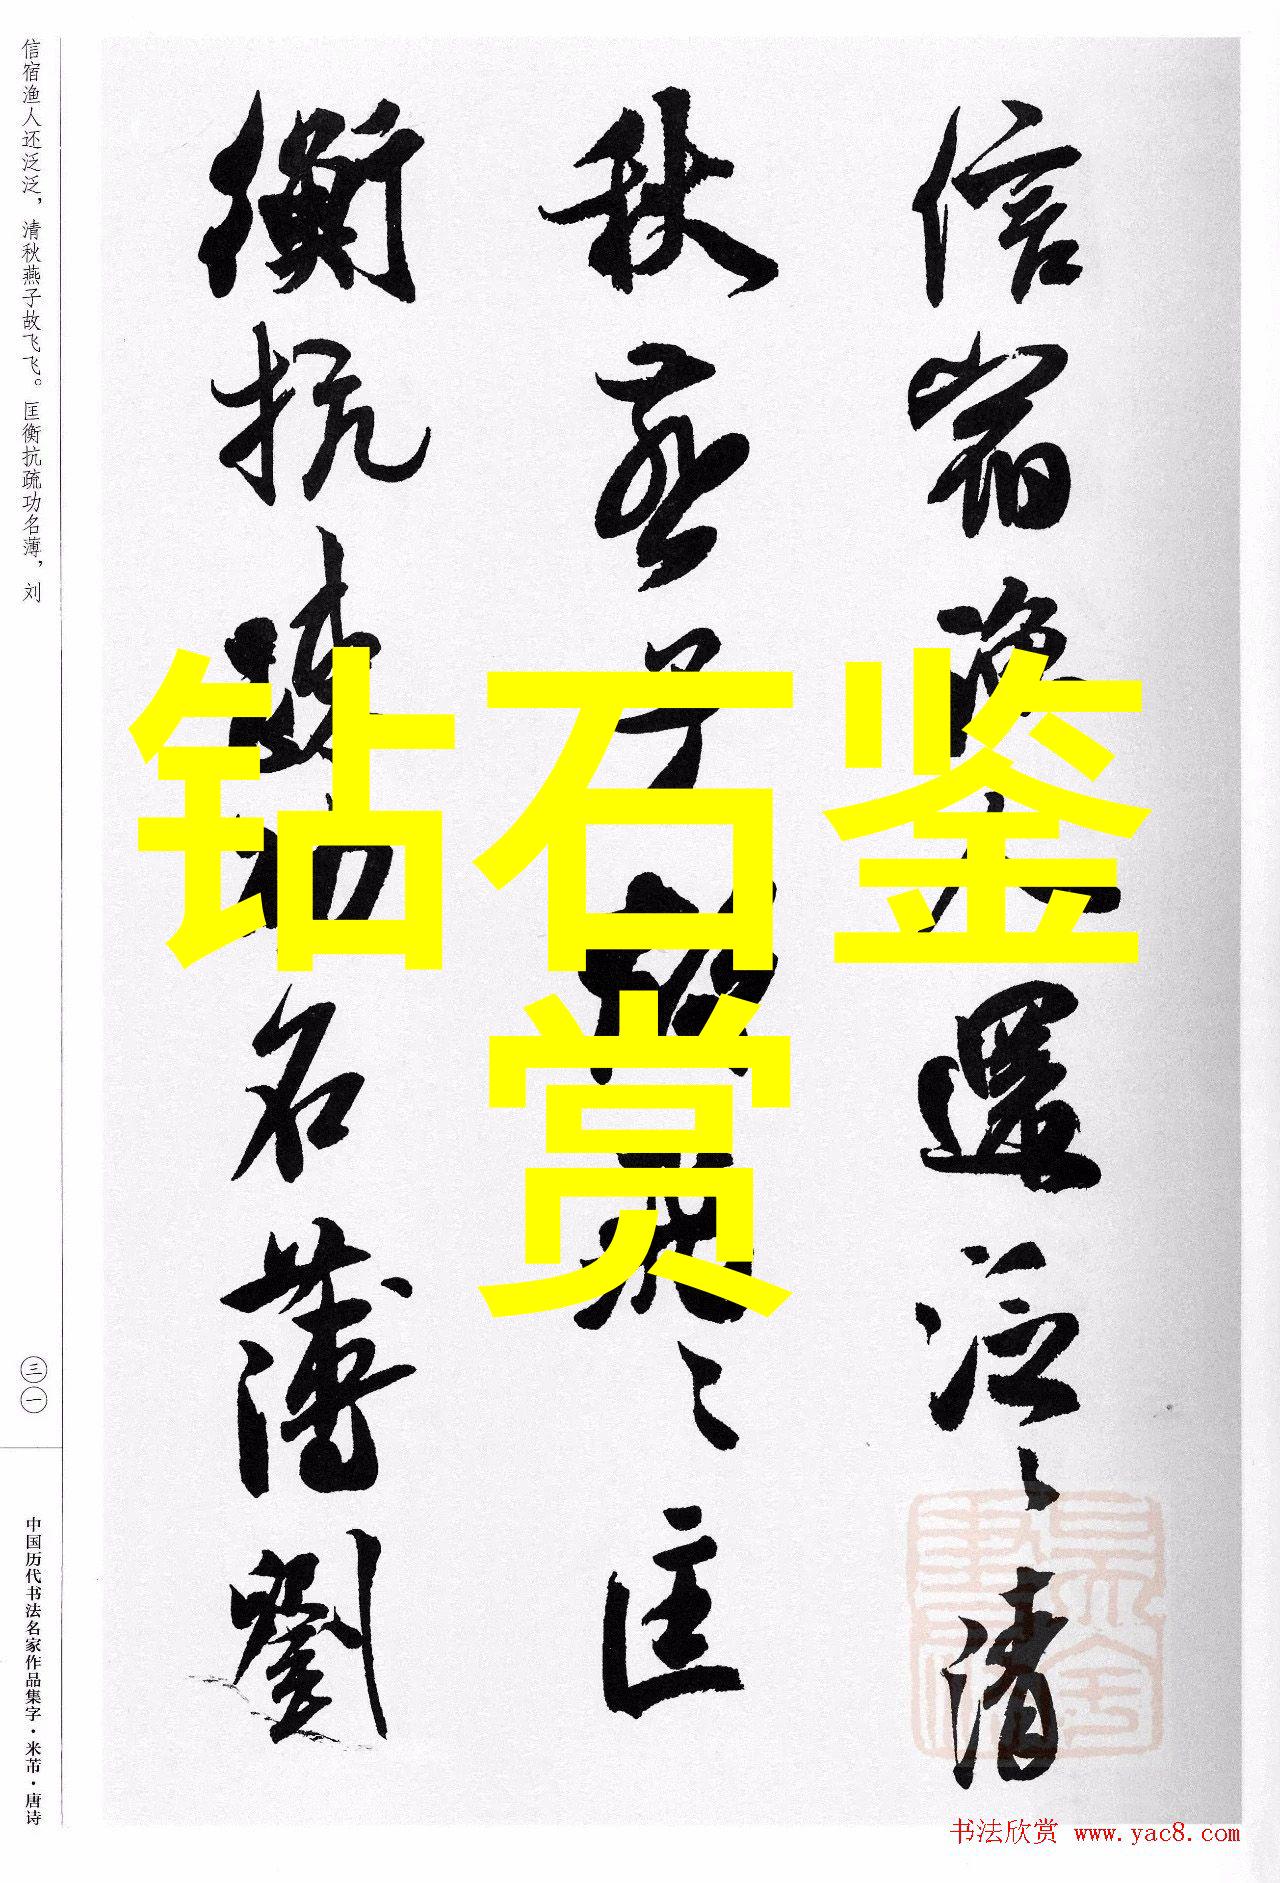 信宿渔人还泛泛，清秋燕子故飞飞。匡衡抗疏功名薄，刘
信宿漁人還泛〻清
秋燕子故飛〻匡
衡抗疏功名薄劉
钻石鉴
赏
三一
中国历代书法名家作品集字·米芾·唐诗
书法欣赏 www.yac8.com